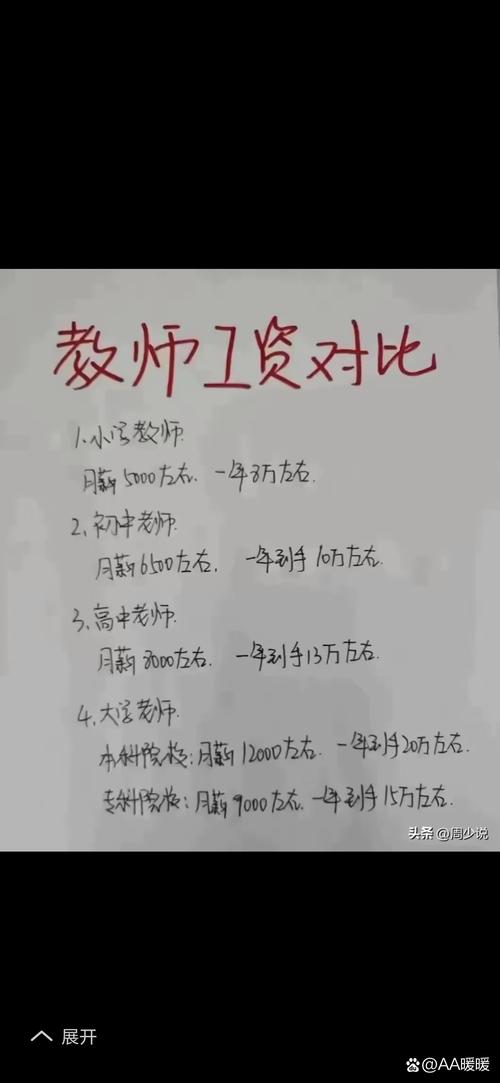 教师工资对比
1.小学教师.
月薪5000左右. 一年8万左右.
2.初中老师.
月薪6500左右, 一年到手10万左右.
3.高中老师.
月薪8000左右. 一年到手13万左右.
4.大学老师.
本科院校:月薪12000左右. 一年到手20万左右.
专科院校:月薪9000左右. 一年到手15万左右.
头条 @周少说
展开
@AA暖暖